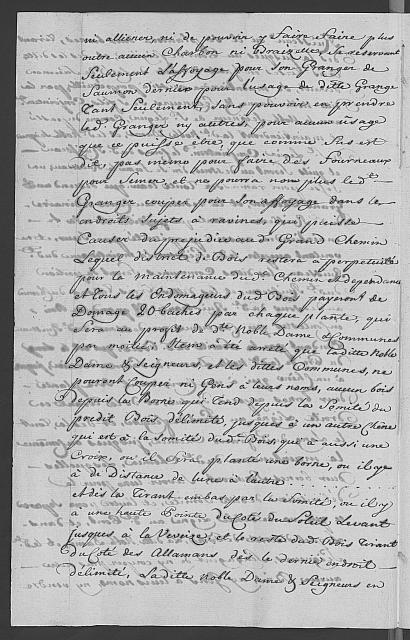 ni alliener, ni de pouvoir y faire faire plus
outre aucun Charbon ni Braizette, Se reservant
Seulement L'affoyage pour Son Granger de
Saumon dernier pour l'usage de ditte Grange
tant Seulement, Sans pouvoir en prendre
led.t Granger ny autres, pour aucun usage
que ce puisse être, que comme Sus est
dit, pas meme pour faire des fourneaux
pour Semer, et ne pourra non plus le d.t
Granger couper pour Son affoyage dans les
endroits Sujets à ravines, qui puisse
Causer du prejudice aud.t Grand Chemin
Lequel district de Bois restera à perpetuité
pour la Maintenance du d.t Chemin et dependance
et tous les Endomageurs du d.t Bois payeront de
Domage 20 baches par chaque plante, qui
Sera au profit de d.tte Noble Dame & Communes
par moitié; Item à été arreté que la ditte Noble
Dame & Seigneurs, et les dittes Communes, ne
pouront Couper ni Gens à leurs noms, aucun bois
depuis la Borne qui tend depuis la Somité du
predit Bois délimité, jusques à un autre Chêne
qui est à la Somité du d.t Bois qui à aussi une
Croix, ou il Sera planté une borne, ou il y a
à de distance de l'une à l'autre
et dès là tirant embas par la Somité, ou il y
à une haute Pointe du Coté du Soleil Levant
jusques à la Veveyse, et le reste du d.t Bois tirant
du Coté des Allamans dès le dernier endroit
délimité, La ditte Noble Dame & Seigneurs en